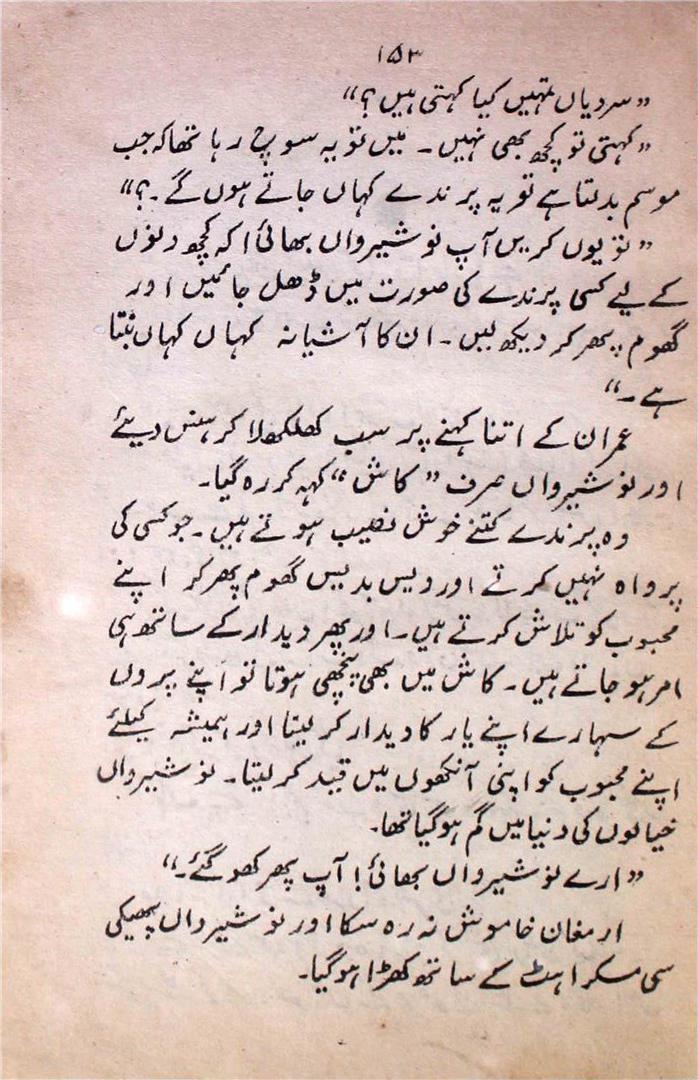 ۱۵۳
”سردیاں تمہیں کیا کہتی ہیں؟“
”کہتی تو کچھ بھی نہیں۔ میں تو یہ سوچ رہا تھا کہ جب
موسم بدلتا ہے تو یہ پرندے کہاں جاتے ہوں گے۔؟“
”تو یوں کریں آپ نوشیرواں بھائی! کہ کچھ دنوں
کے لیے کسی پرندے کی صورت میں ڈھل جائیں اور
گھوم پھر کر دیکھ لیں۔ ان کا آشیانہ کہاں کہاں بنتا
ہے۔“
عمران کے اتنا کہنے پر سب کھلکھلا کر ہنس دیئے
اور نوشیرواں صرف ”کاش“ کہہ کر رہ گیا۔
وہ پرندے کتنے خوش نصیب ہوتے ہیں۔ جو کسی کی
پرواہ نہیں کرتے اور دیس بدیس گھوم پھر کر اپنے
محبوب کو تلاش کرتے ہیں۔ اور پھر دیدار کے ساتھ ہی
امر ہو جاتے ہیں۔ کاش میں بھی پنچھی ہوتا تو اپنے پروں
کے سہارے اپنے یار کا دیدار کر لیتا اور ہمیشہ کیلئے
اپنے محبوب کو اپنی آنکھوں میں قید کر لیتا۔ نوشیرواں
خیالوں کی دنیا میں گم ہو گیا تھا۔
”ارے نوشیرواں بھائی! آپ پھر کھو گئے۔“
ارمغان خاموش نہ رہ سکا اور نوشیرواں پھیکی
سی مسکراہٹ کے ساتھ کھڑا ہو گیا۔